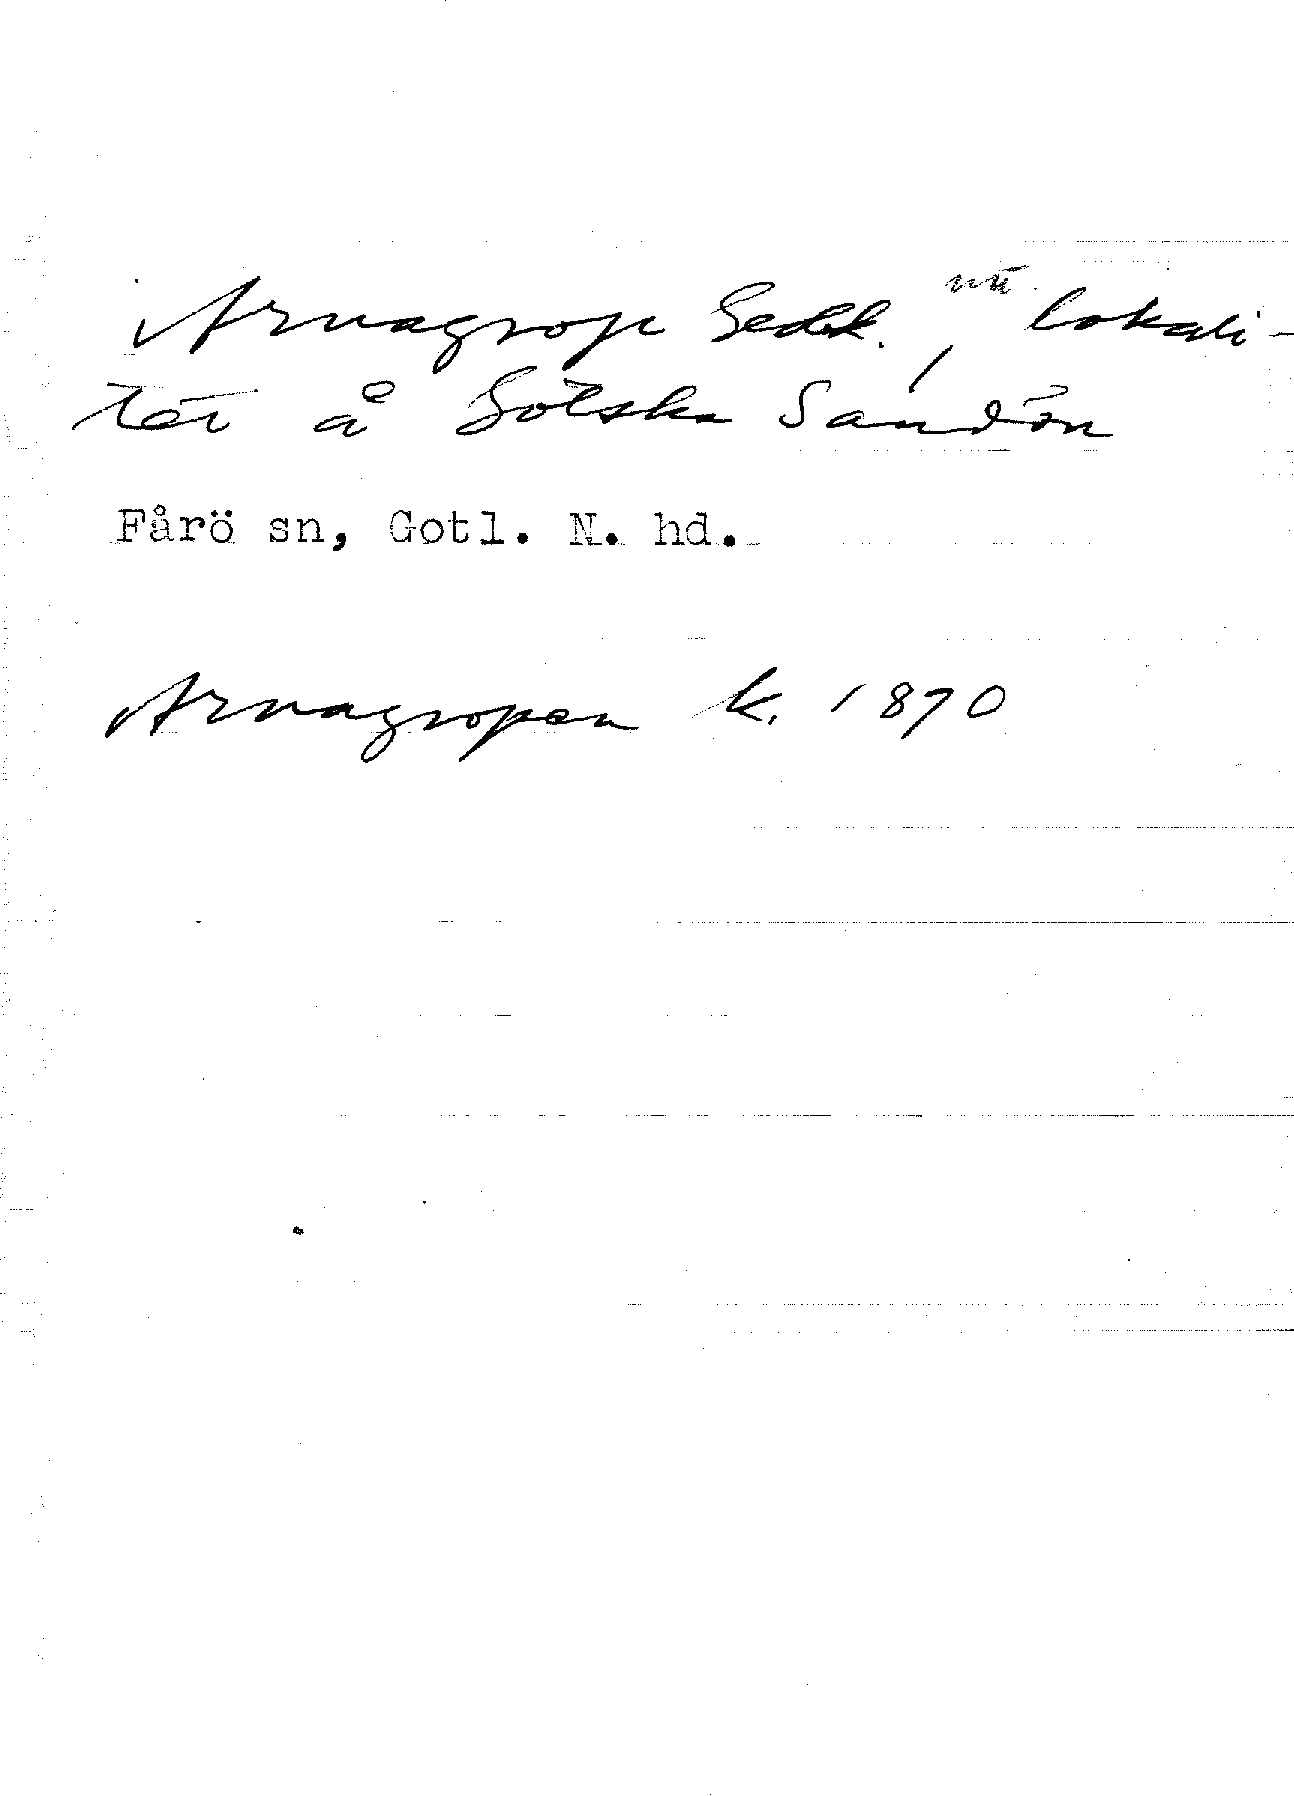 Arnagrop nu
lokali-
tet å Gotska Sandön
Fårö sn, Gotl. N. hd.
Arnagropen k. 1870